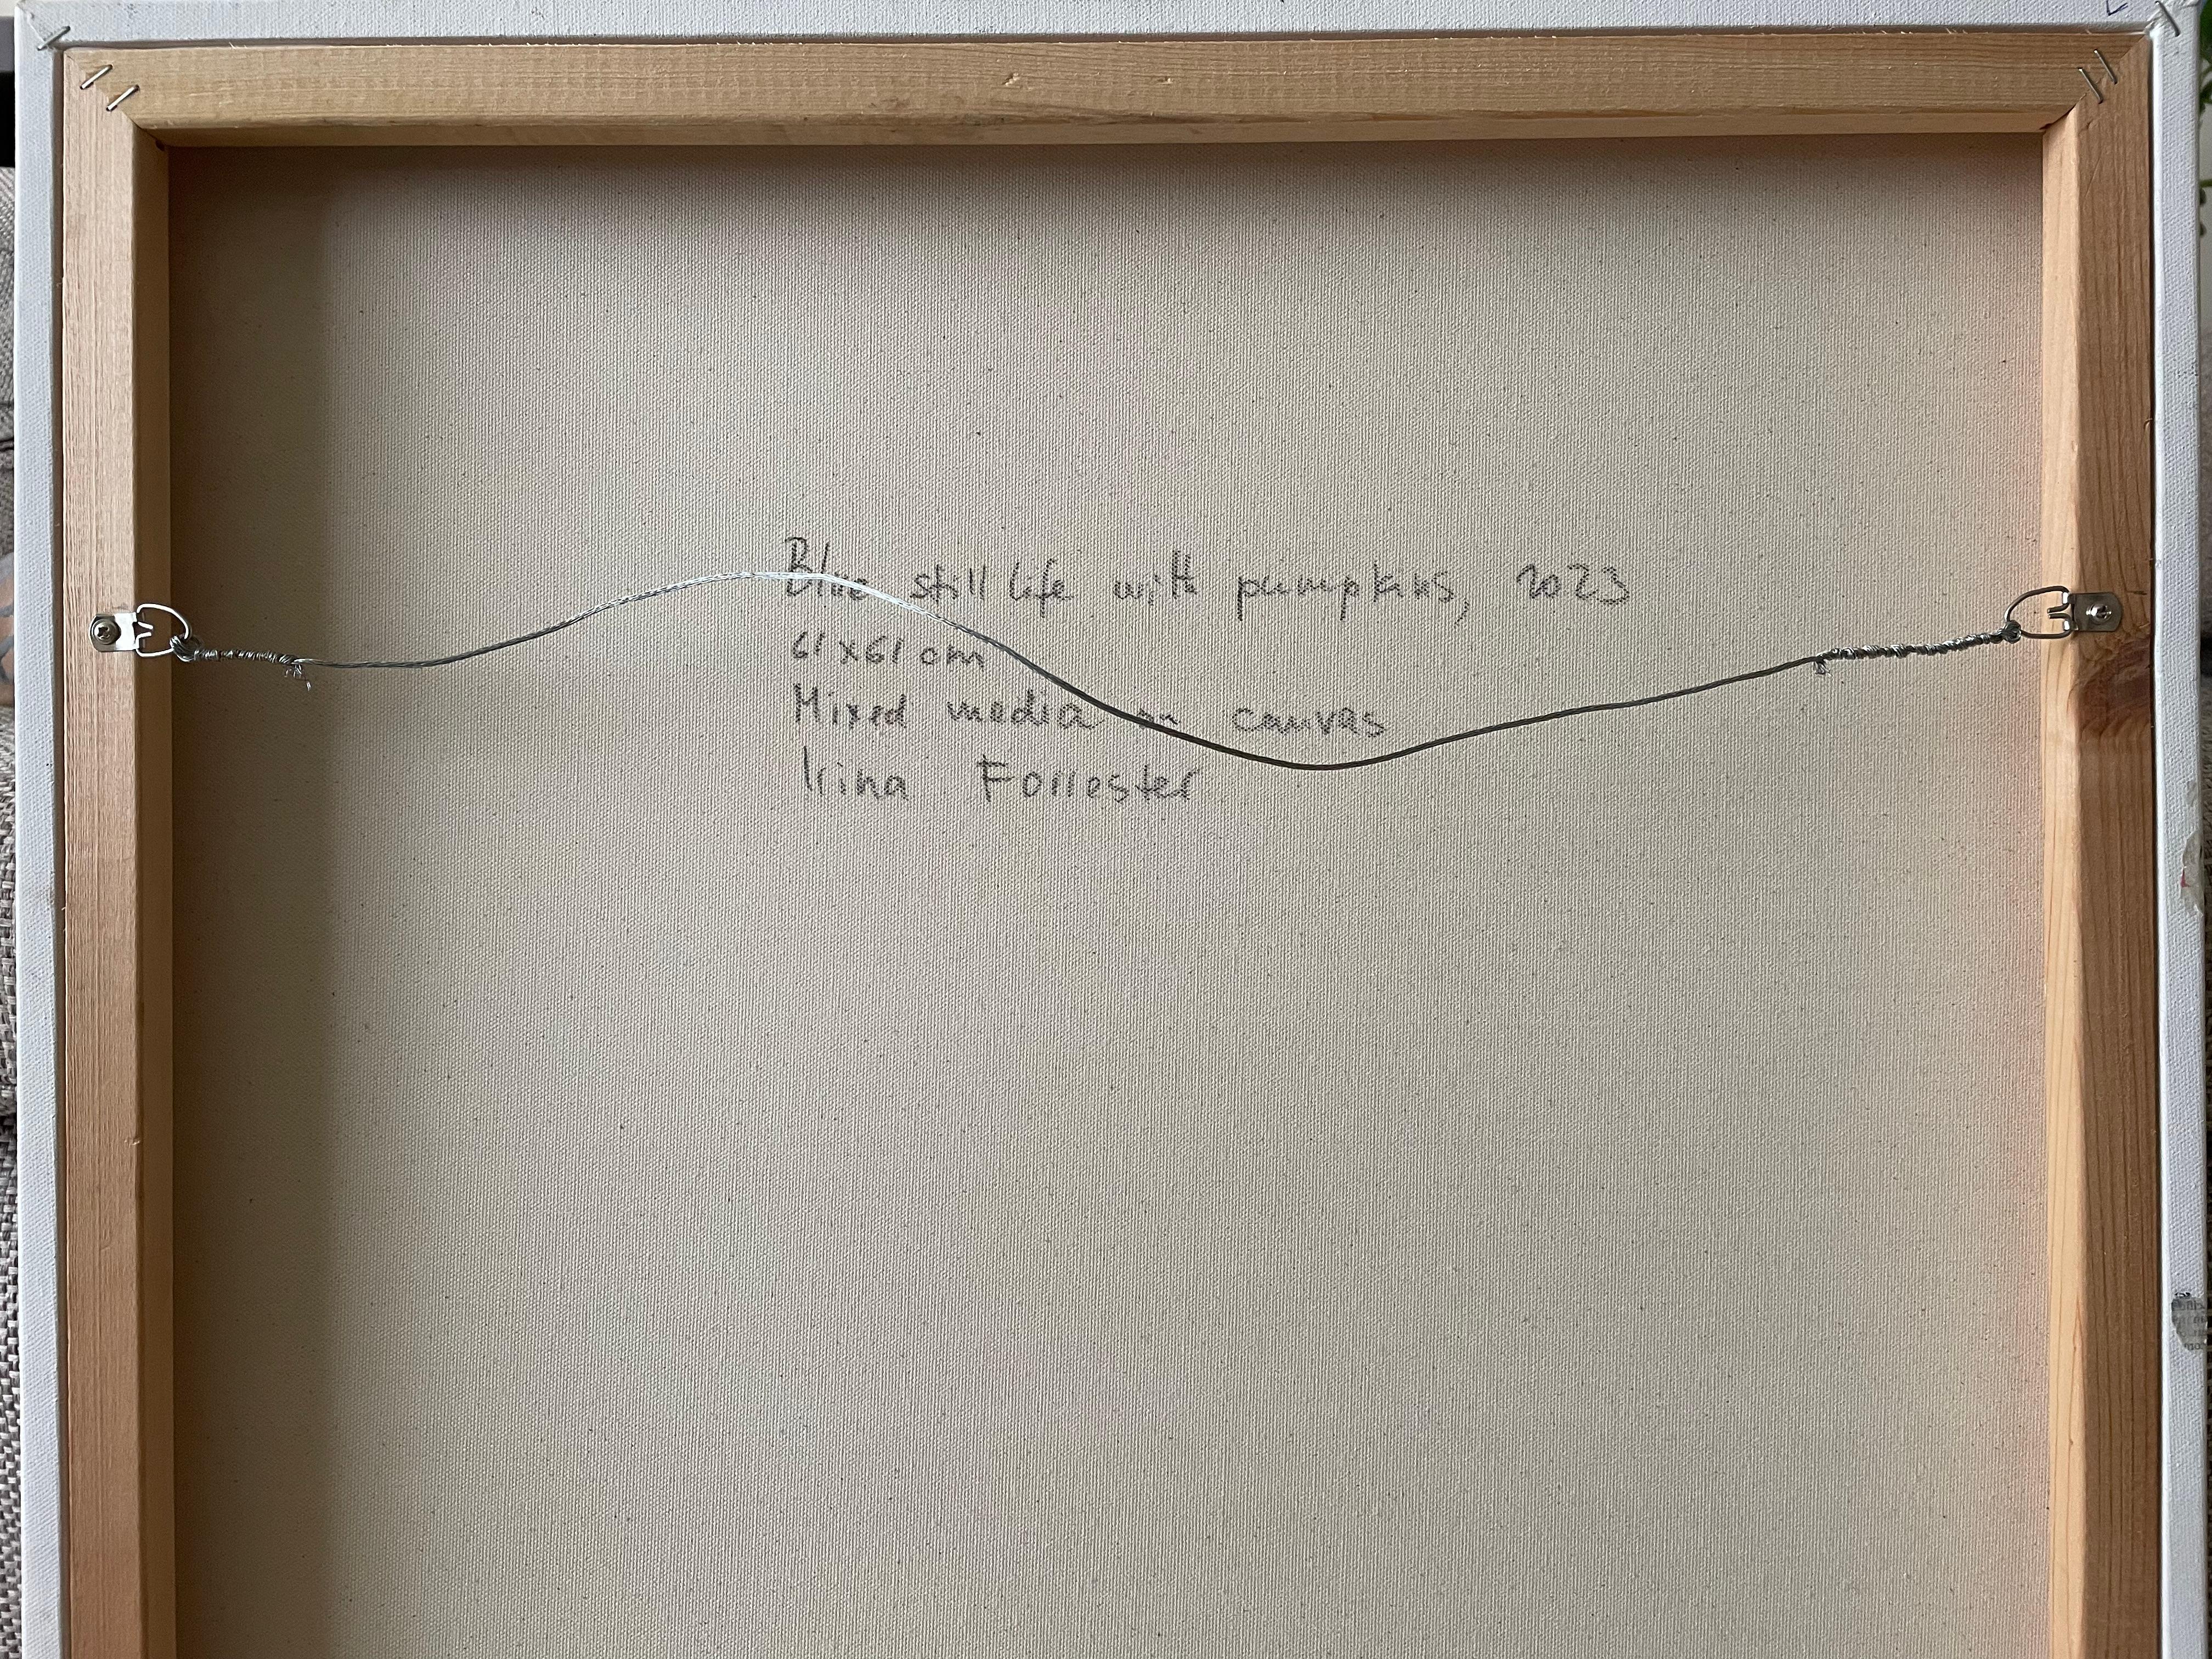 Blue still life with pumpkins, 2023
61x61 cm
Mixed media on canvas
Irina Forrester